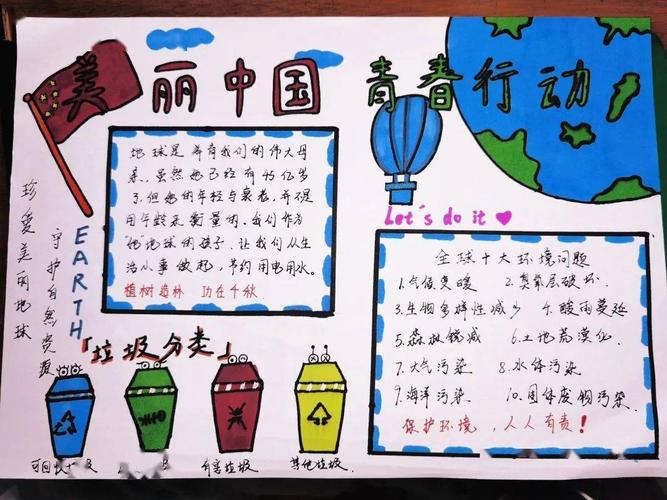 美丽中国
青春行动
地球是养育我们的伟大母
亲，虽然她已经有46亿岁
了，但她的年轻与衰老，并不是
用年龄来衡量的。我们作为
"她"地球的孩子，让我们从生
活小事做起，节约用电用水。
植树造林 功在千秋
珍爱美丽地球
守护自然资源
EARTH
Let's do it
全球十大环境问题
1.气候变暖 2.臭氧层破坏
3.生物多样性减少 4.酸雨蔓延
5.森林锐减 6.土地荒漠化
7.大气污染 8.水体污染
9.海洋污染 10.固体废物污染
保护环境，人人有责！
「垃圾分类」
有害垃圾
其他垃圾